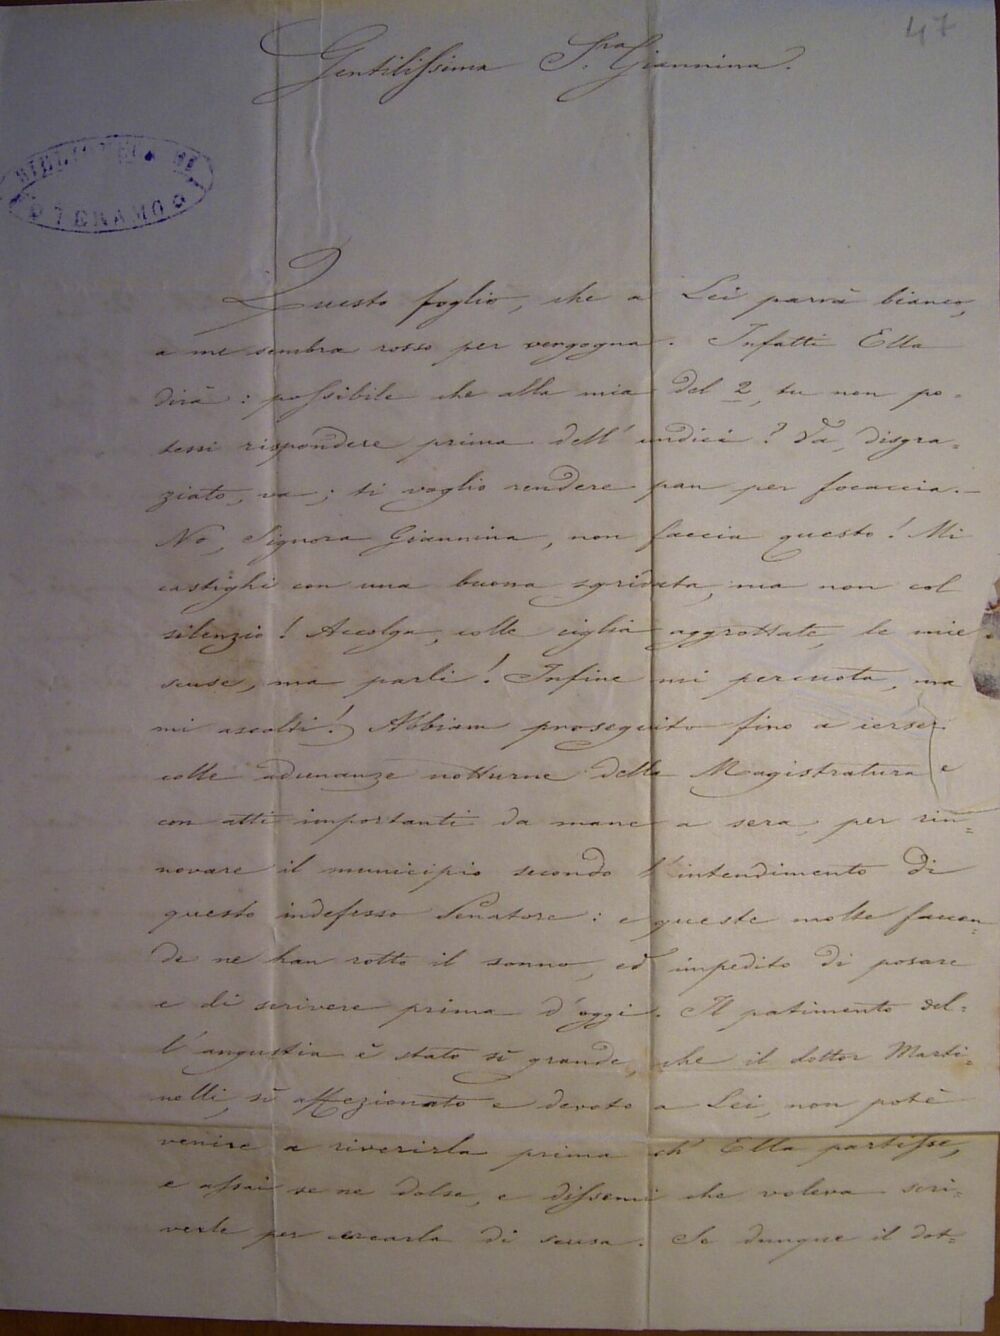 47
Gentilissima S.ra Giannina.
BIBLIOTECA DI
TERAMO
Questo foglio, che a Lei parrà bianco,
a me sembra rosso per vergogna. Infatti Ella
dirà: possibile che alla mia del 2, tu non po-
tessi rispondere prima dell'undici? Va, disgra-
ziato, va; ti voglio rendere pan per focaccia.—
No, Signora Giannina, non faccia questo! Mi
castighi con una buona sgridata, ma non col
silenzio! Accolga, colle ciglia aggrottate, le mie
scuse, ma parli! Infine mi percuota, ma
mi ascolti! Abbiam proseguito fino a ierser
colle adunanze notturne della Magistratura e
con atti importanti da mane a sera, per rin-
novare il municipio secondo l'intendimento di
questo indefesso Senatore: e queste molte faccen-
de ne han rotto il sonno, ed impedito di posare
e di scrivere prima d'oggi. Il patimento del-
l'angustia è stato sì grande, che il dottor Marti-
nelli, sì affezionato e devoto a Lei, non potè
venire a riverirla prima ch'Ella partisse,
e assai se ne dolse, e dissemi che voleva scri-
verle per cercarla di scusa. Se dunque il dot-